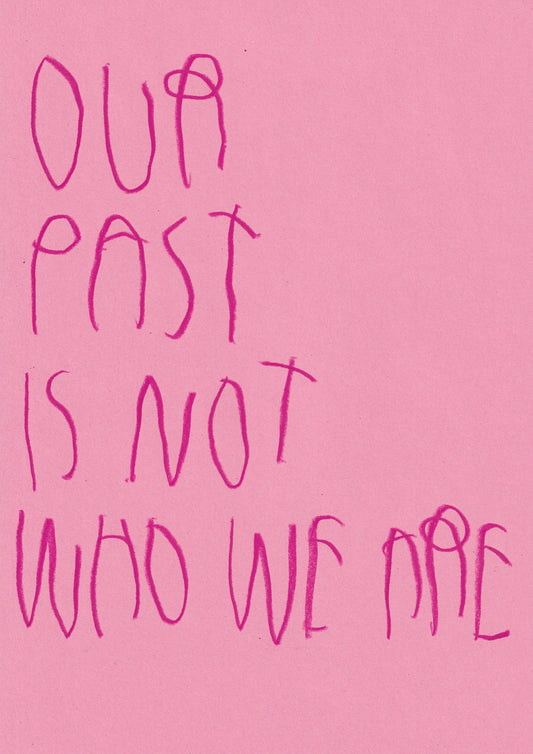 OUR
PAST
IS NOT
WHO WE ARE